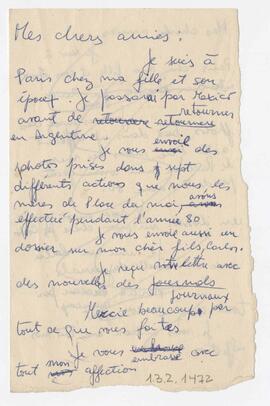 Mes chers amies:
Je suis à
Paris chez ma fille et son
époux. Je passerai par Mexico
avant de retourner retournes
en Argentine.
envoil
Je vous des
photos prises dans sept
différents actions que nous, les
mères de Place de mai avons
effectué pendant l'année 80
Je vous envoie aussi un
dossier sur mon cher fils, Carlos.
Je reçu lettre avec
des nouvelles des journals
journaux
Mercie beaucoup par
tout ce que vous faites
Je vous embrase avec
tout mon affection
13.2.1472